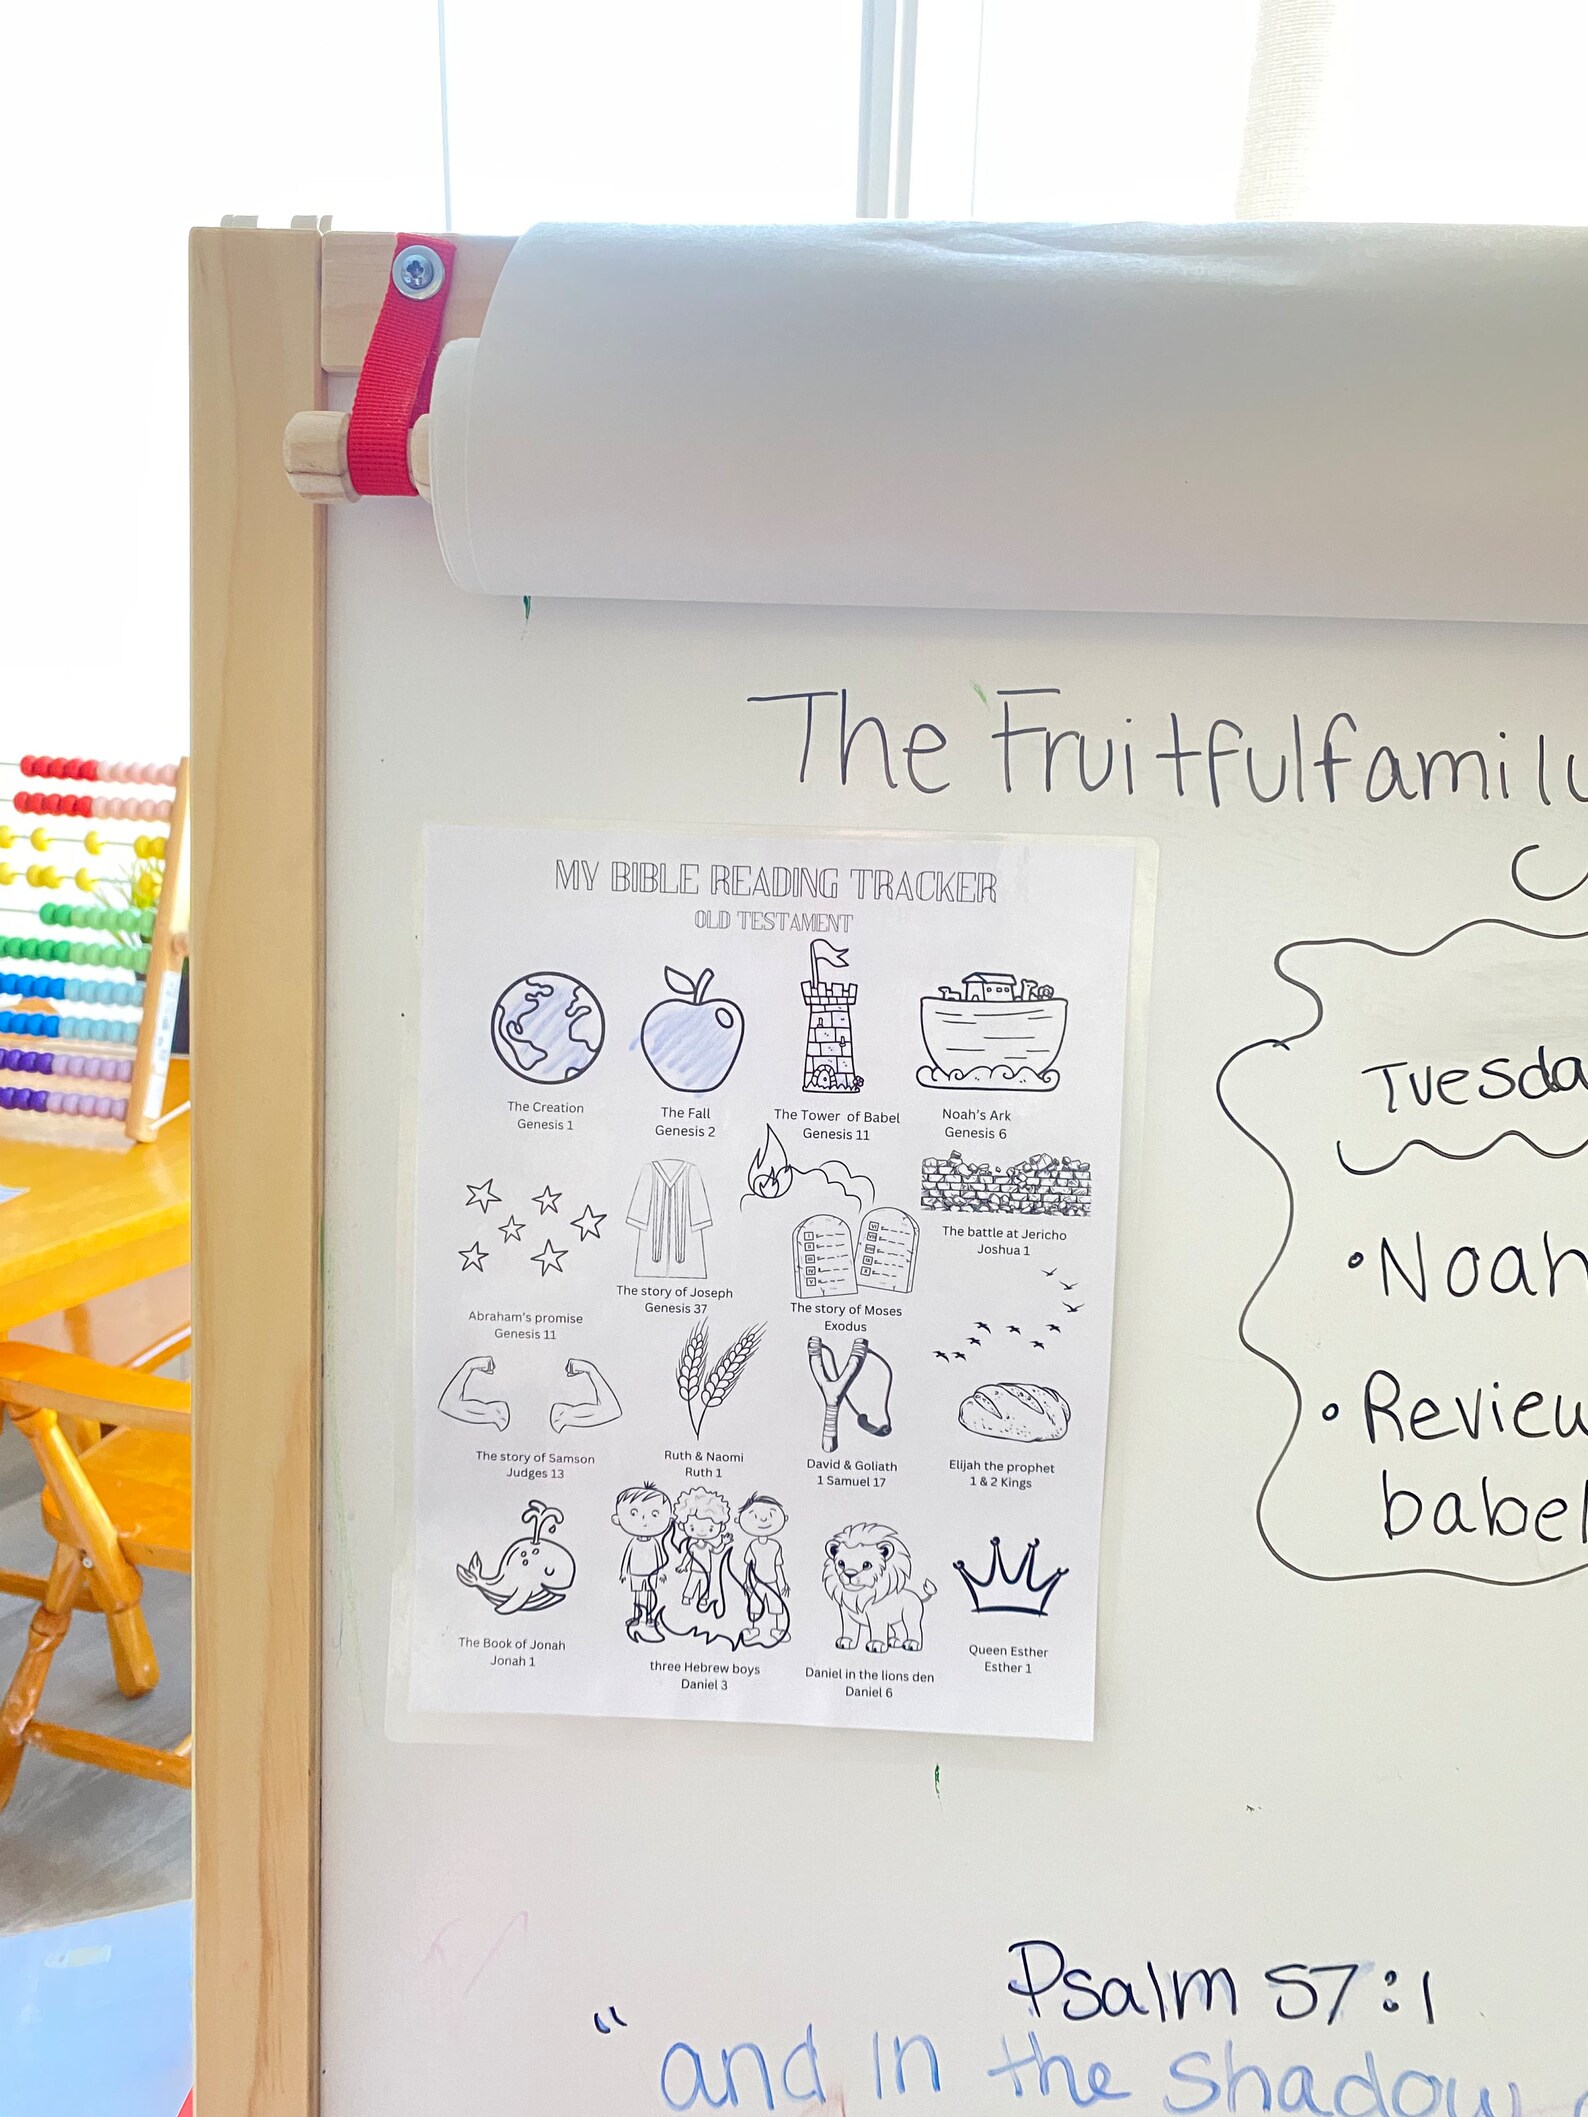 The Fruitfulfamily
MY BIBLE READING TRACKER
OLD TESTAMENT
The Creation
Genesis 1
The Fall
Genesis 2
The Tower of Babel
Genesis 11
Noah's Ark
Genesis 6
Abraham's promise
Genesis 11
The story of Joseph
Genesis 37
The story of Moses
Exodus
The battle at Jericho
Joshua 1
The story of Samson
Judges 13
Ruth & Naomi
Ruth 1
David & Goliath
1 Samuel 17
Elijah the prophet
1 & 2 Kings
The Book of Jonah
Jonah 1
three Hebrew boys
Daniel 3
Daniel in the lions den
Daniel 6
Queen Esther
Esther 1
Tuesda
•Noah
•Review
babel
Psalm 57:1
"and in the shadow